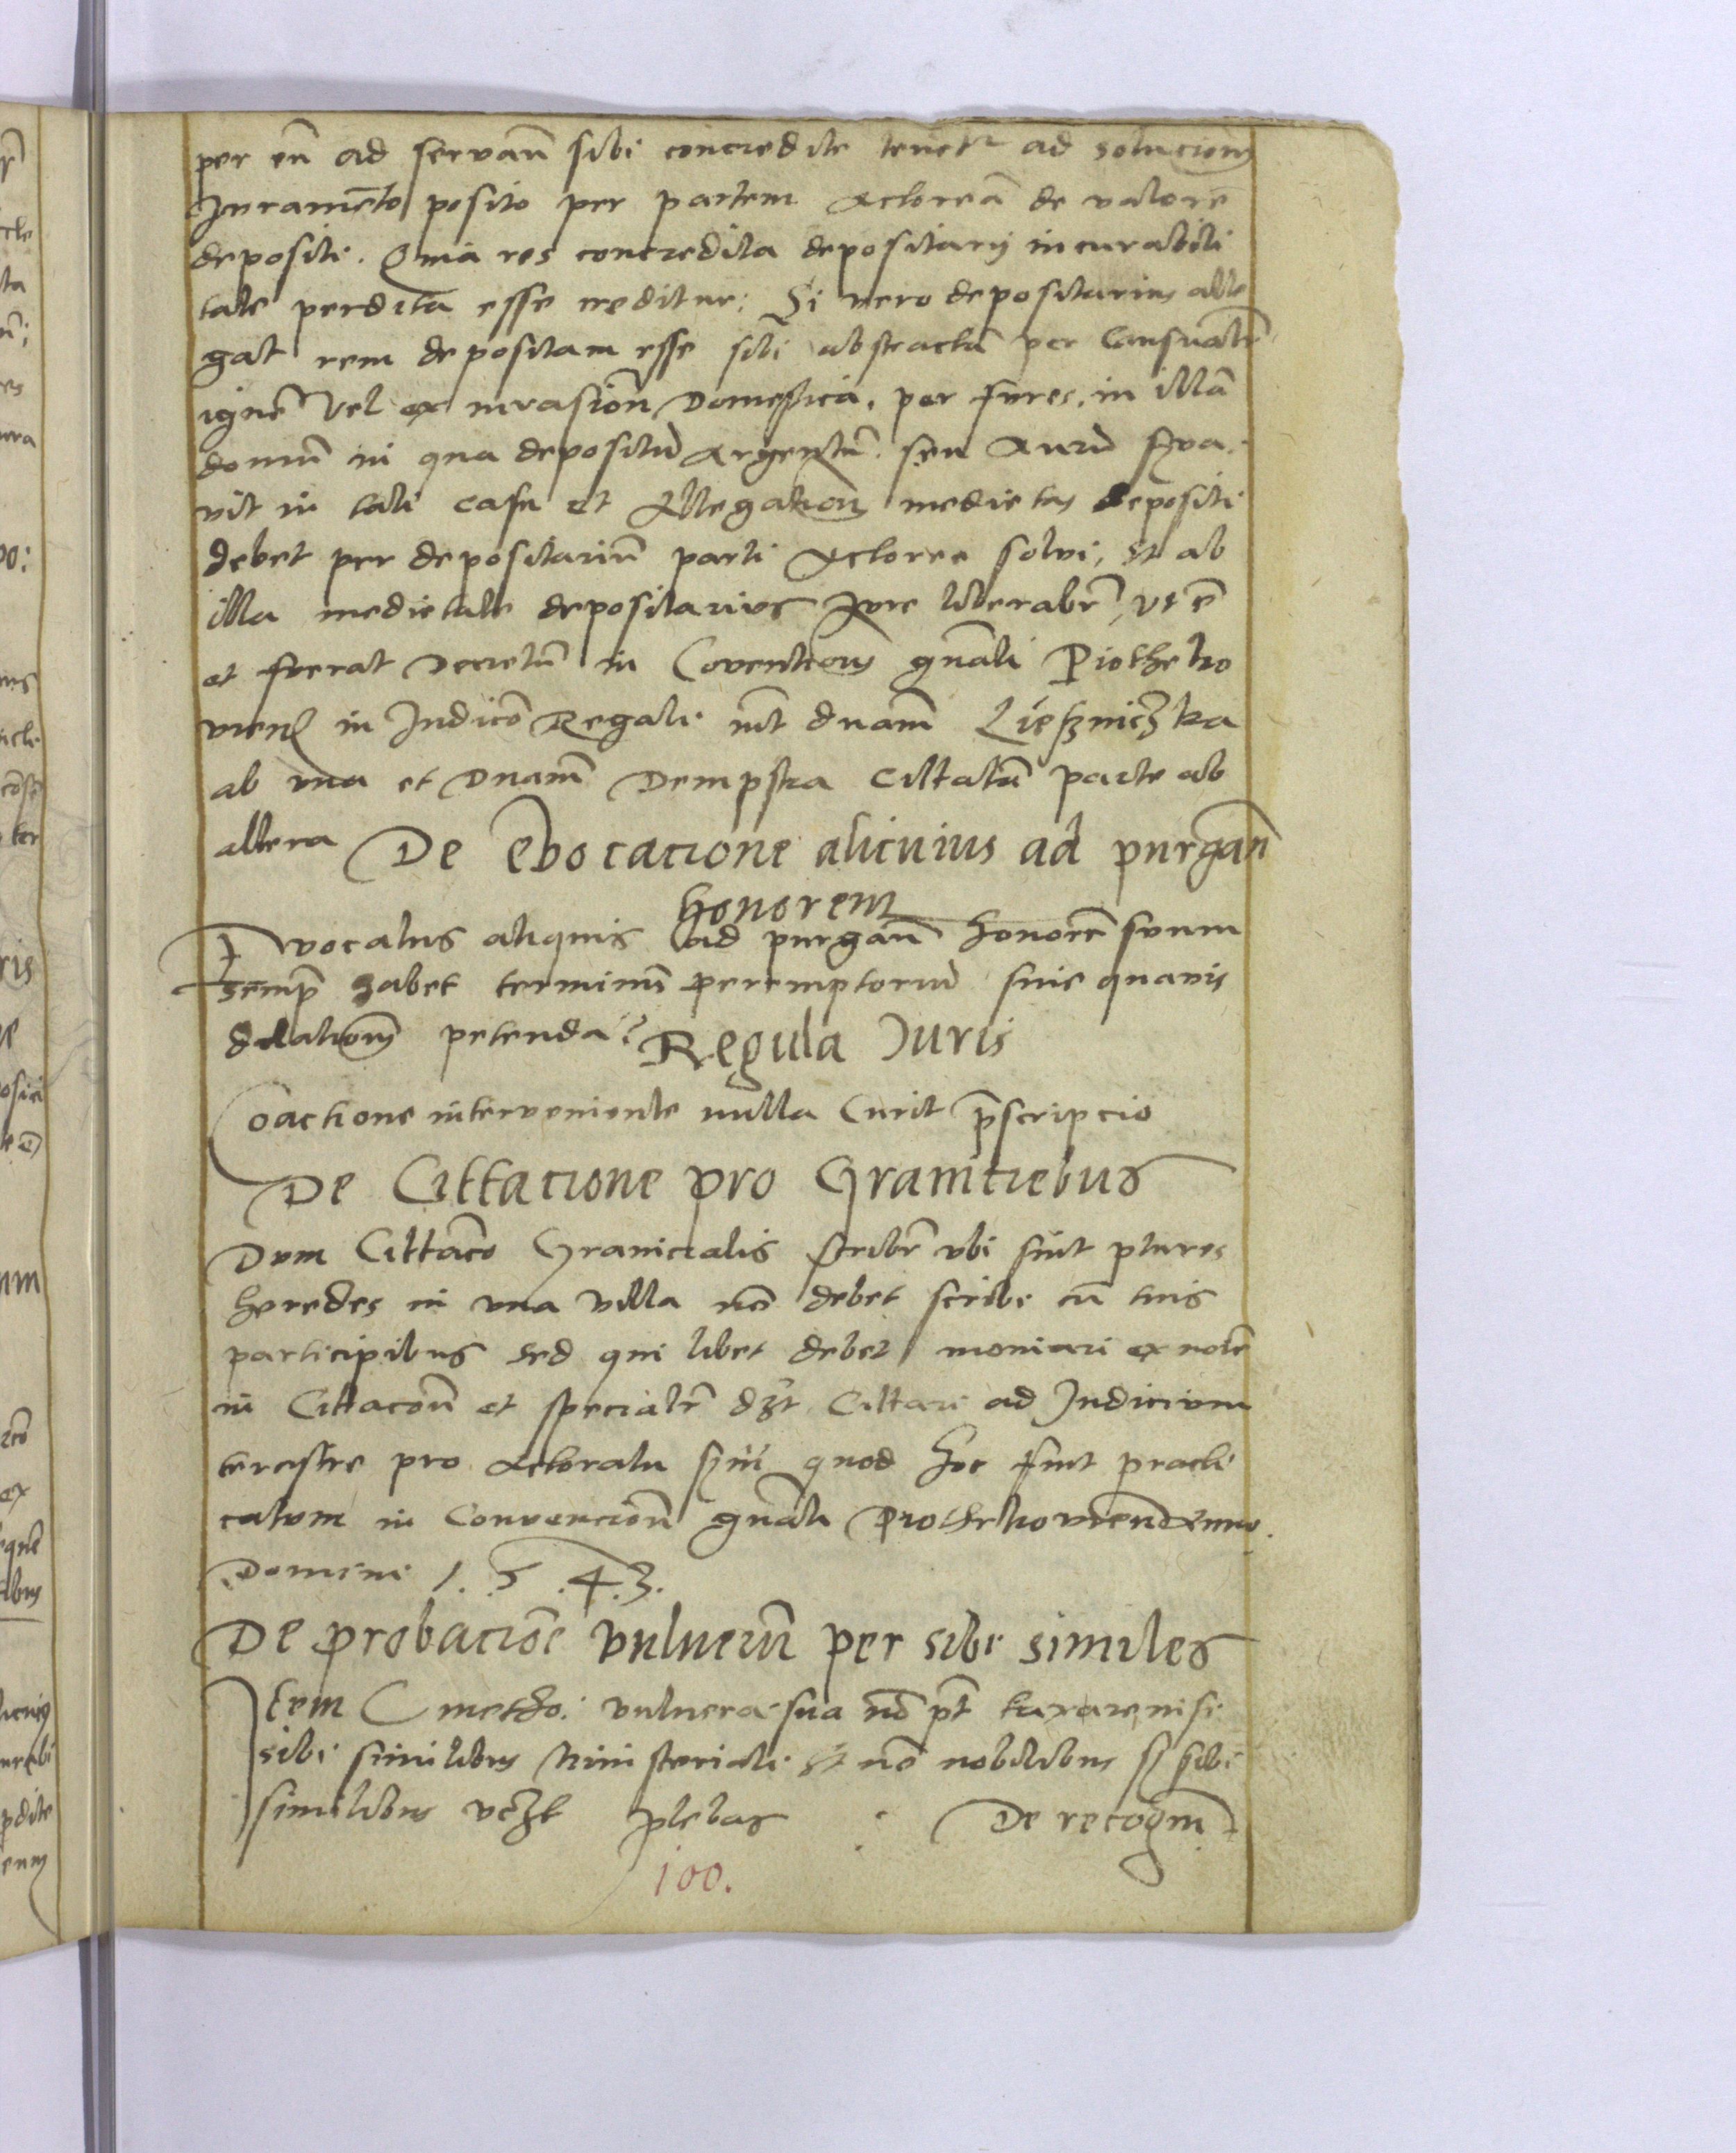 per eū ad servañ sibi concredite tenetr ad solucionē
Juramēto posito per partem Actoreā de valore
depositi. Quia res concredita depositarij incurabili
tate perdita esse creditur: Si vero depositarius alle
gat rem depositam esse sibi abstractā per Casualē
ignē Vel ex invasionē domesticā, per fures, in illā
domū in qua depositū Argentū seu Aurū s̄rva-
vit in tali casu et Allegationē medietas depositi
debet per depositariū parti Actoree solvi, Et ab
illa medietate depositarius Jure liberabr̄, ut ē
et fuerat decretū in Coventionē gn̄ali Piothrko
vien̄ in Judicō Regali int̄ dnam̄ Lieszniczka
ab una et dnam̄ Dempska Cittatā parte ab
altera De evocatione alicuius ad purgan̄
honorem
Evocatus aliquis ad purgan̄ honorē suum
semp̄ habet terminū peremptoriū sine quavis
dilationē petenda: Regula Juris
Coactione interveniente nulla Curit p̄scripcio
De Cittacione pro Granitiebus
Dum Cittacō Granicialis scribr̄ ubi sint plures
heredes in una villa nō debet scribi cū tuis
participibus sed qui libet debet moniari ex noīe
in Cittacōn̄ et specialr̄ dzt Cittari ad Judicium
terestre pro Actoratu quod hoc fuit practi
catum in Convencion̄ gn̄ali Piothrkovien̄ Anno
Domini 1.5.4.3.
De probaciōe vulnerū per sibi similes
Item Cmetho vulnera sua nō pt̄ taxare, nisi
sibi similibus Ministeriali Et nō nobilibus s̄z sibi
similibus vczt plebas De recognī
100.